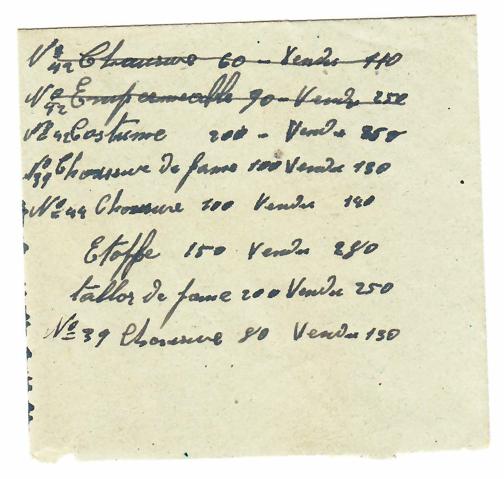 Nº 42 Chaussure 60 - Vendu 110
Nº 42 Empermeable 90 - Vendu 250
Nº 42 Costume 200 - Vendu 350
Nº 39 Chousseure de fame 100 Vendu 130
Nº 44 Choussure 100 Vendu 140
Etoffe 150 Vendu 280
tallor de fame 200 Vendu 250
Nº 39 Choussure 80 Vendu 130